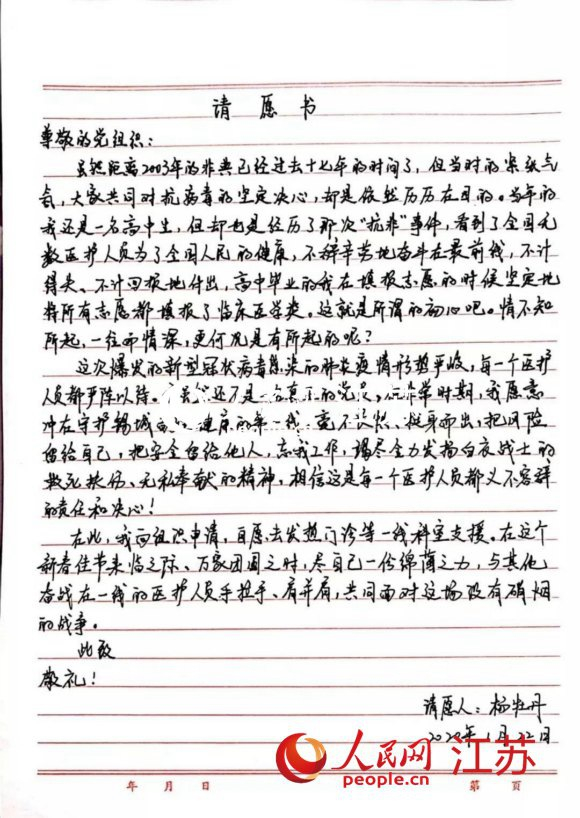 请愿书
尊敬的党组织：
虽然距离2003年的非典已经过去十七年的时间了，但当时的紧张气
氛，大家共同对抗病毒的坚定决心，却是依然历历在目的。当年的
我还是一名高中生，但却也是经历了那次"抗非"事件，看到了全国无
数医护人员为了全国人民的健康，不辞辛劳地奋斗在最前线，不计
得失、不计回报地付出，高中毕业的我在填报志愿的时候坚定地
将所有志愿都填报了临床医学类。这就是所谓的初心吧。情不知
所起，一往而情深，更何况是有所起的呢？
这次爆发的新型冠状病毒感染的肺炎疫情形势严峻，每一个医护
人员都严阵以待。虽然还不是一名真正的党员，非常时期，我愿意
冲在守护锡城健康的第一线，毫不畏惧、挺身而出，把风险
留给自己，把安全留给他人，忘我工作，竭尽全力发扬白衣战士的
救死扶伤、无私奉献的精神，相信这是每一个医护人员都义不容辞
的责任和决心！
在此，我向组织申请，自愿去发热门诊等一线科室支援。在这个
新春佳节来临之际、万家团圆之时，尽自己一份绵薄之力，与其他
奋战在一线的医护人员手拉手、肩并肩，共同面对这场没有硝烟
的战争。
此致
敬礼！
请愿人：杨牡丹
2020年1月22日
人民网 江苏
people.cn
年 月 日 第 页